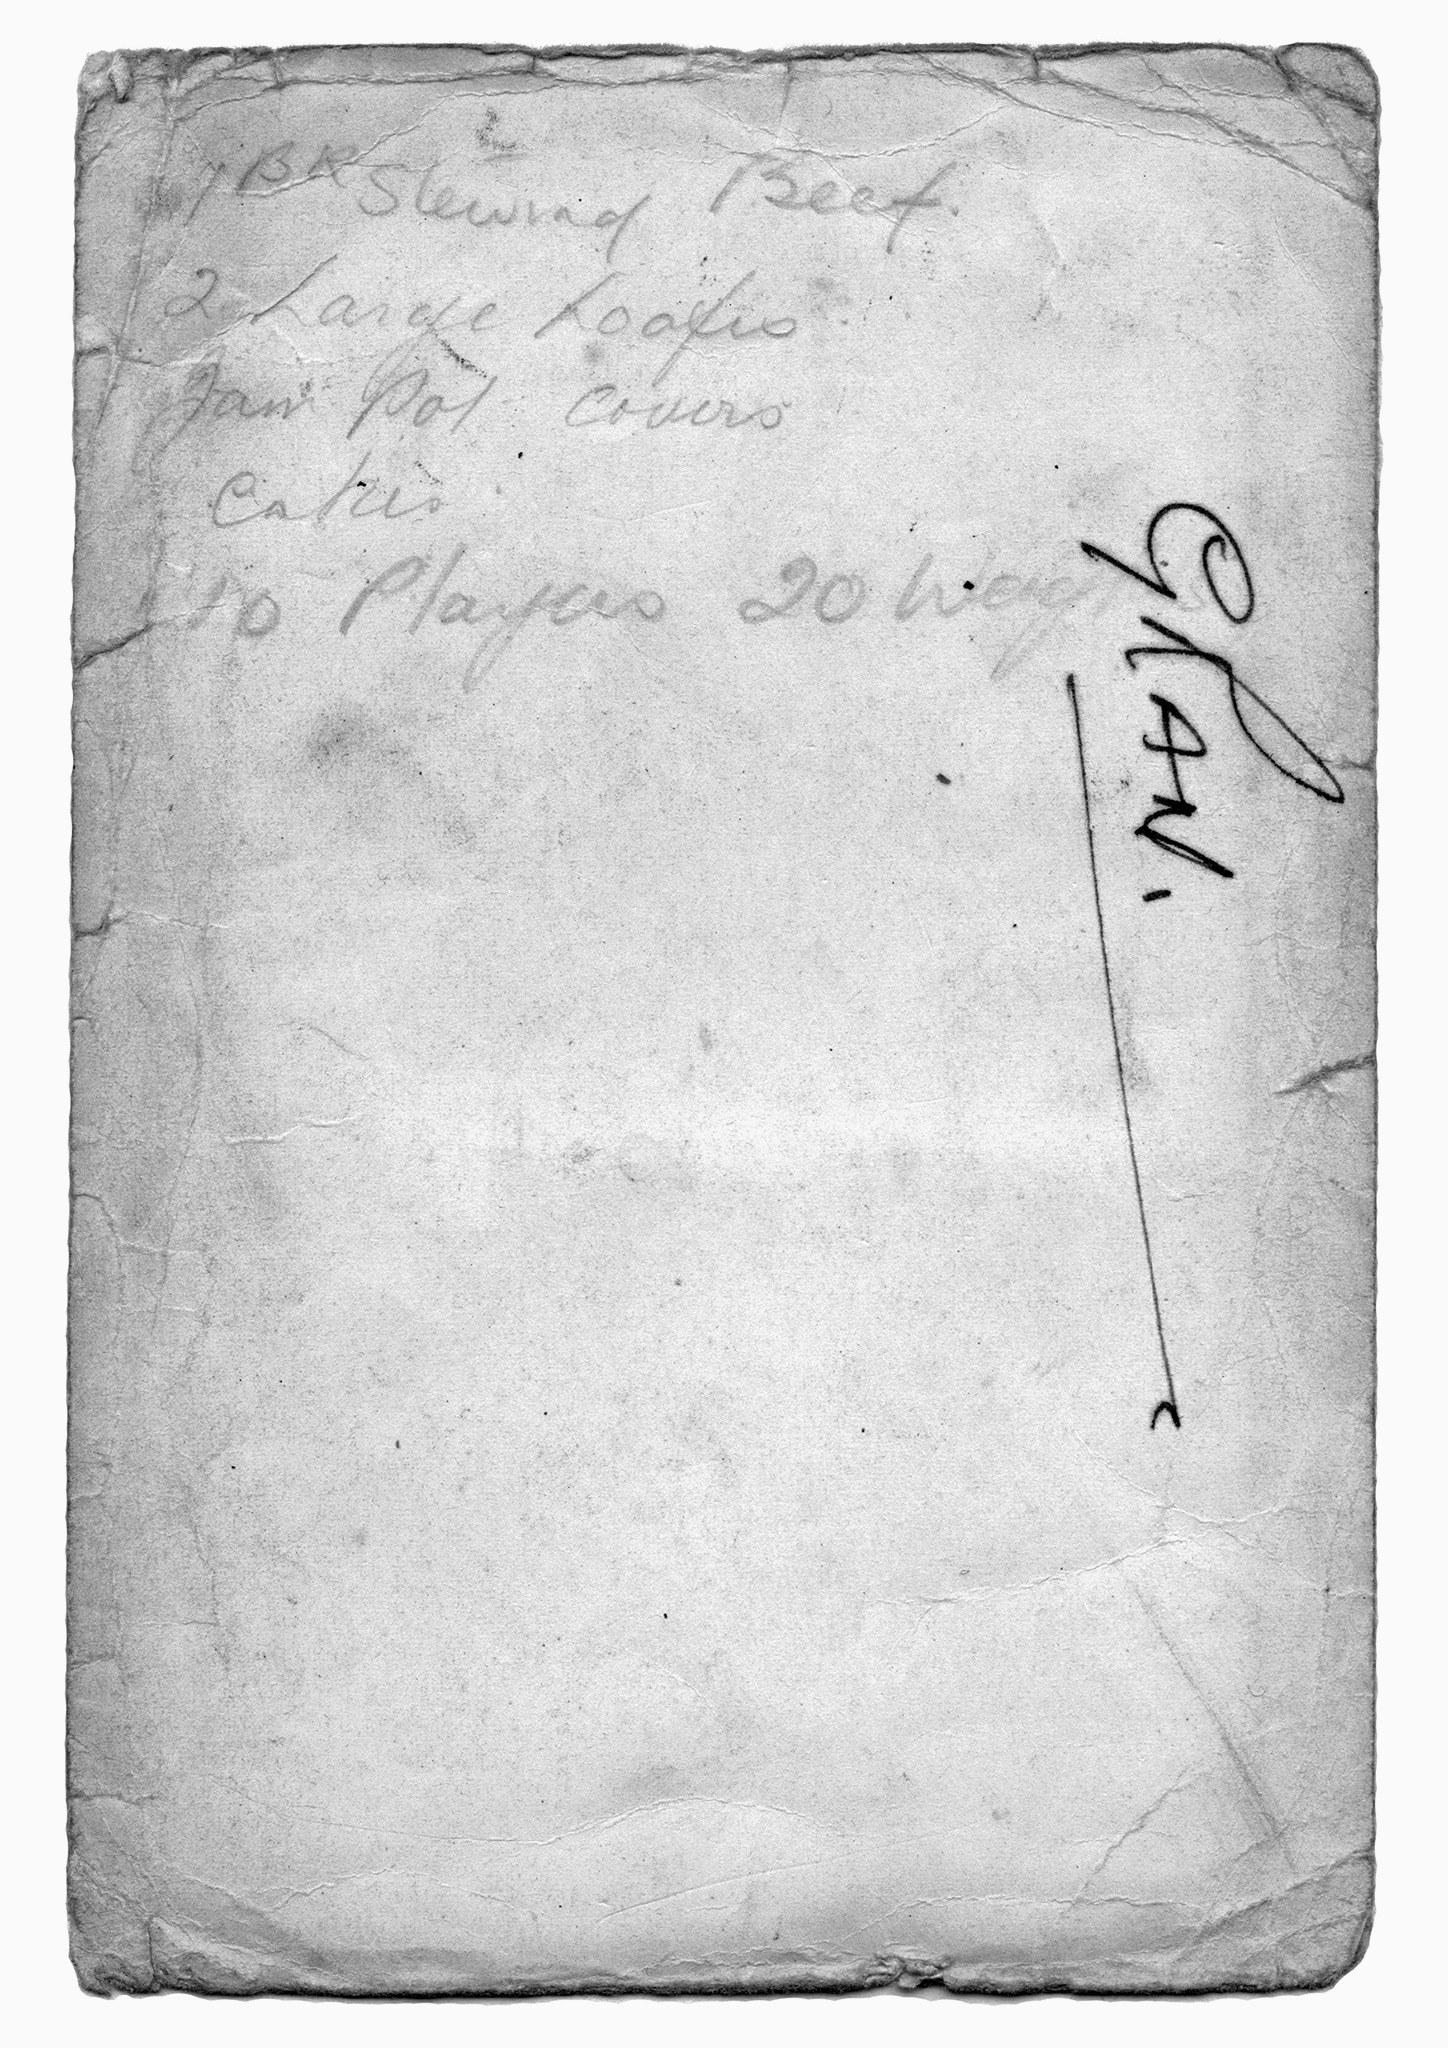 1 BR Stewing Beef.
2 Large Loafes
Jam Pot Covers
Cakes
10 Players 20 Weig
GRAN.